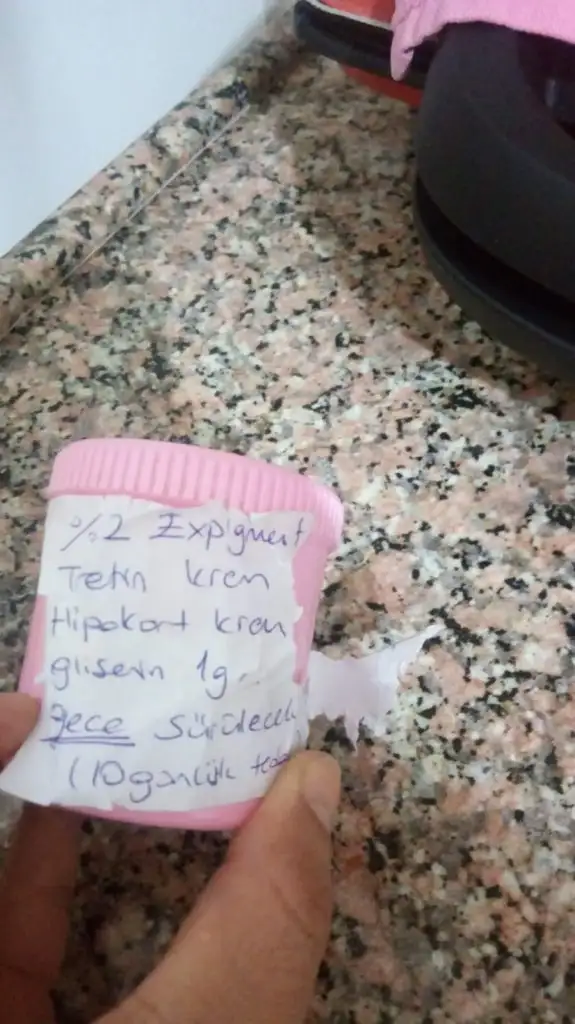 %2 Expigment
Tretin krem
Hipokort krem
gliserin 1g
gece sürülecek
(10 günlük